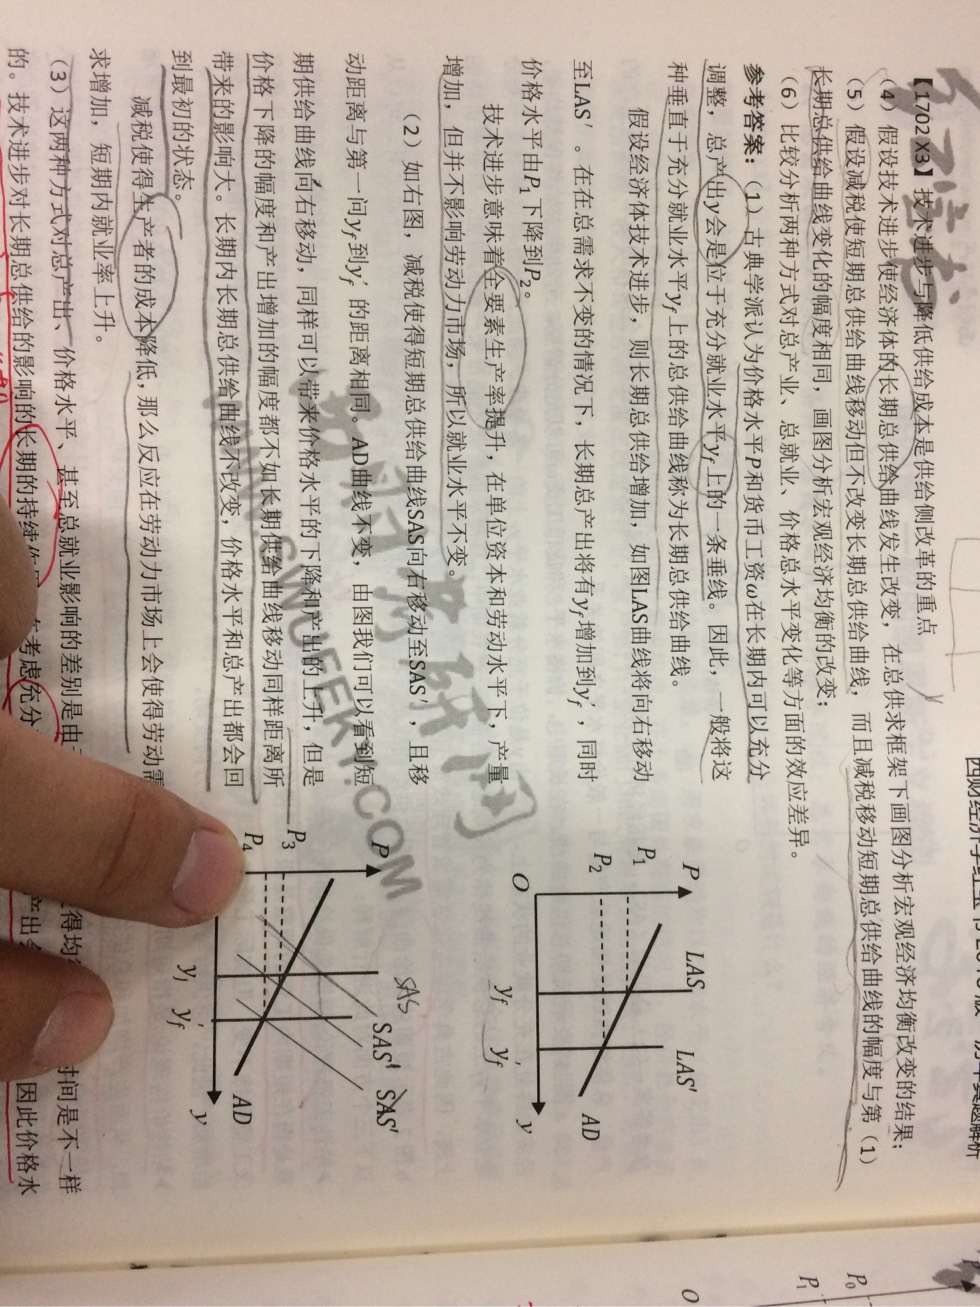 【1702X3】技术进步与降低供给成本是供给侧改革的重点
（4）假设技术进步使经济体的长期总供给曲线发生改变，在总供求框架下画图分析宏观经济均衡改变的结果；
（5）假设减税使短期总供给曲线移动但不改变长期总供给曲线，而且减税移动短期总供给曲线的幅度与第（1）
长期总供给曲线变化的幅度相同，画图分析宏观经济均衡的改变；
（6）比较分析两种方式对总产业、总就业、价格总水平变化等方面的效应差异。
参考答案：（1）古典学派认为价格水平P和货币工资ω在长期内可以充分
调整，总产出y会是位于充分就业水平yf上的一条垂线。因此，一般将这
种垂直于充分就业水平yf上的总供给曲线称为长期总供给曲线。
假设经济体技术进步，则长期总供给增加，如图LAS曲线将向右移动
至LAS′。在在总需求不变的情况下，长期总产出将有yf增加到yf′，同时
价格水平由P1下降到P2。
技术进步意味着全要素生产率提升，在单位资本和劳动水平下，产量
增加，但并不影响劳动力市场，所以就业水平不变。
（2）如右图，减税使得短期总供给曲线SAS向右移动至SAS′，且移
动距离与第一问yf到yf′的距离相同。AD曲线不变，由图我们可以看到短
期供给曲线向右移动，同样可以带来价格水平的下降和产出的上升，但是
价格下降的幅度和产出增加的幅度都不如长期供给曲线移动同样距离所
带来的影响大。长期内长期总供给曲线不改变，价格水平和总产出都会回
到最初的状态。
减税使得生产者的成本降低，那么反应在劳动力市场上会使得劳动需
求增加，短期内就业率上升。
（3）这两种方式对总产出、价格水平、甚至总就业影响的差别是由
时间是不一样
的。技术进步对长期总供给的影响的长期的持续
考虑充分
产出
因此价格水
P
LAS
LAS′
P1
P2
O
yf
yf′
AD
y
P
SAS
SAS′
SAS′
P3
P4
y1
yf′
AD
y
P0
P1
O